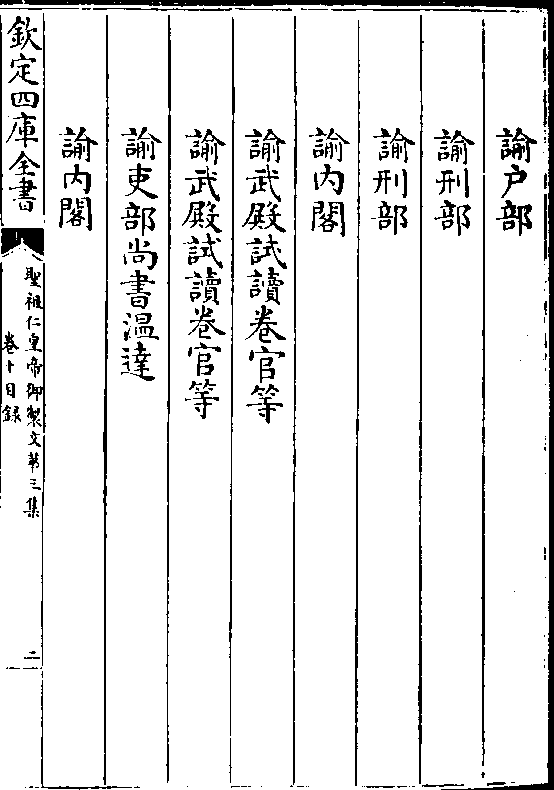 諭户部
諭刑部
諭刑部
諭内閣
諭武殿試讀卷官等
諭武殿試讀卷官等
諭吏部尚書温達
諭内閣
欽定四庫全書
聖祖仁皇帝御製文第三集
卷十目録
二